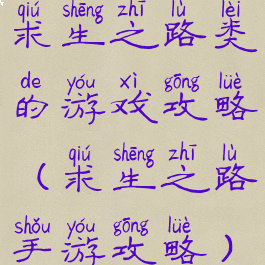 qiú shēng zhī lù lèi
求生之路类
de yóu xì gōng lüè
的游戏攻略
qiú shēng zhī lù
（求生之路
shǒu yóu gōng lüè
手游攻略）